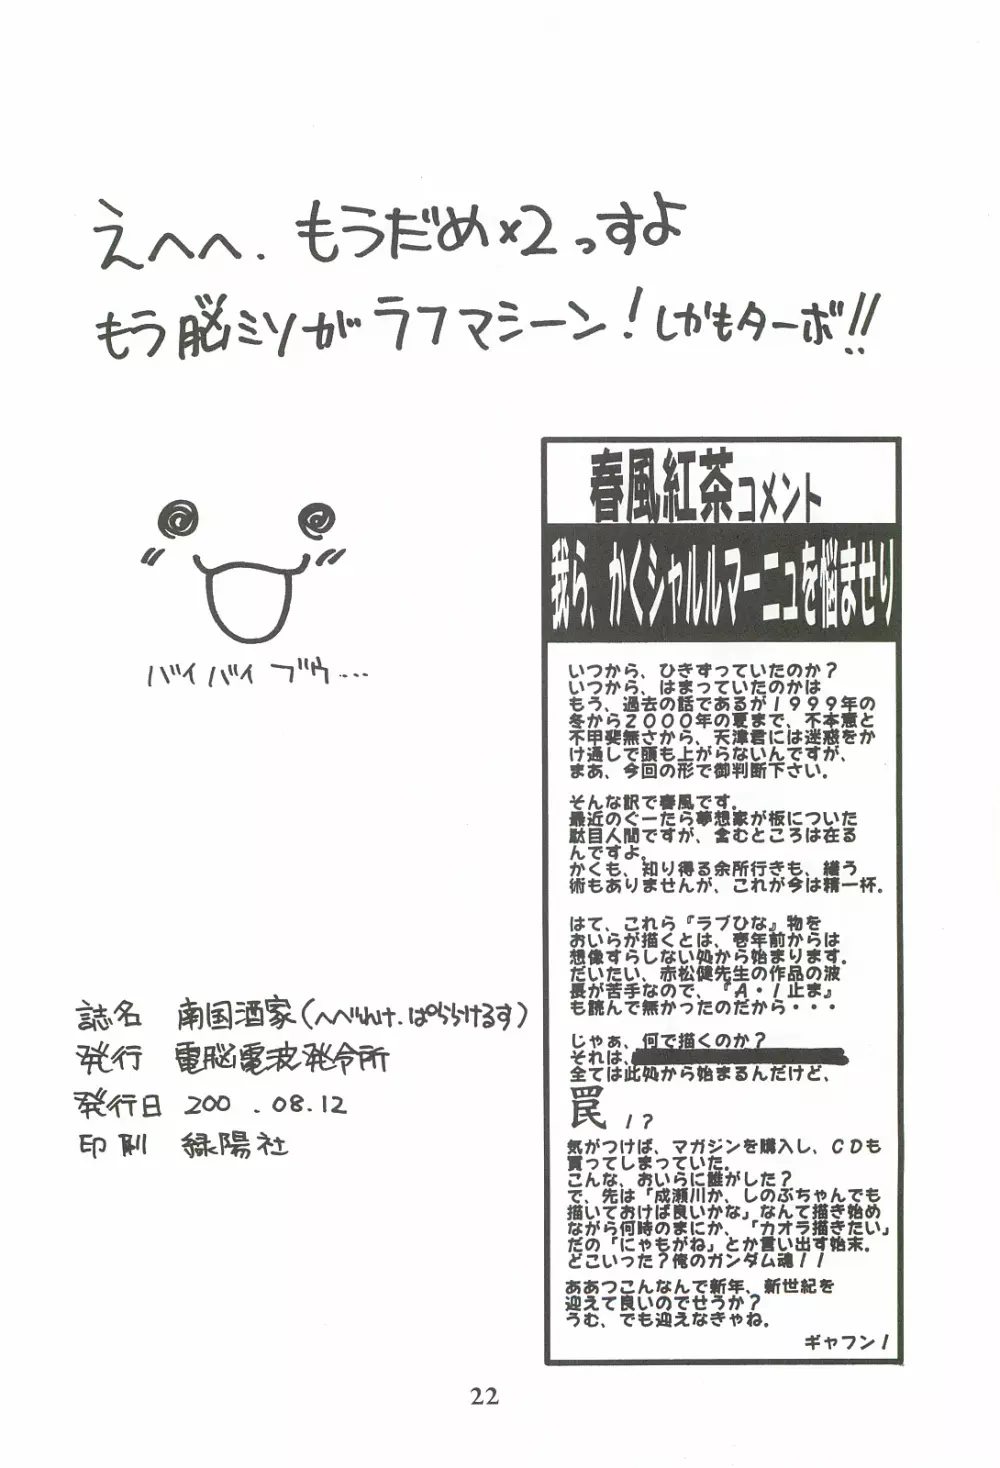 えへへ. もうだめ×2っすよ
もう脳ミソがラフマシーン！しかもターボ！！
バイバイ ブゥ....
誌名 南国酒家(へべれけ.ぱららけるす)
発行 電脳電波発令所
発行日 200 .08.12
印刷 緑陽社
春風紅茶コメント
我ら、かくシャルルマーニュを悩ませり
いつから、ひきずっていたのか？
いつから、はまっていたのかは
もう、過去の話であるが１９９９年の
冬から２０００年の夏まで、不本意と
不甲斐無さから、天津君には迷惑をか
け通しで頭も上がらないんですが、
まあ、今回の形で御判断下さい。
そんな訳で春風です。
最近のぐーたら夢想家が板についた
駄目人間ですが、含むところは在る
んですよ。
かくも、知り得る余所行きも、繕う
術もありませんが、これが今は精一杯。
はて、これら『ラブひな』物を
おいらが描くとは、壱年前からは
想像すらしない処から始まります。
だいたい、赤松健先生の作品の波
長が苦手なので、『Ａ・Ｉ止ま』
も読んで無かったのだから・・・
じゃぁ、何で描くのか？
それは、
全ては此処から始まるんだけど、
罠！？
気がつけば、マガジンを購入し、ＣＤも
買ってしまっていた。
こんな、おいらに誰がした？
で、先は「成瀬川か、しのぶちゃんでも
描いておけば良いかな」なんて描き始め
ながら何時のまにか、「カオラ描きたい」
だの「にゃもがね」とか言い出す始末。
どこいった？俺のガンダム魂！！
ああつこんなんで新年、新世紀を
迎えて良いのでせうか？
うむ、でも迎えなきゃね。
ギャフン！
22